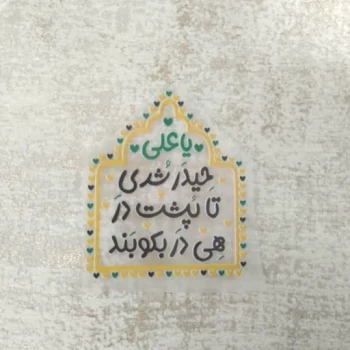 یا علی
حِیدَر شُدی
تا پُشت دَر
هِی دَر بکوبَند